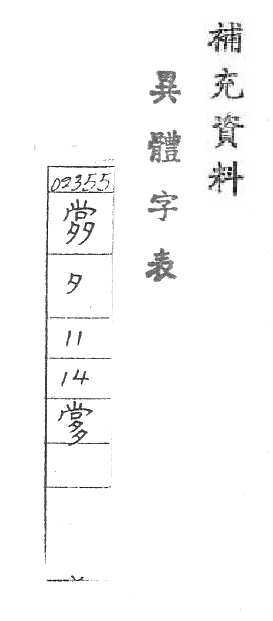 補充資料
異體字表
02355
夕
11
14